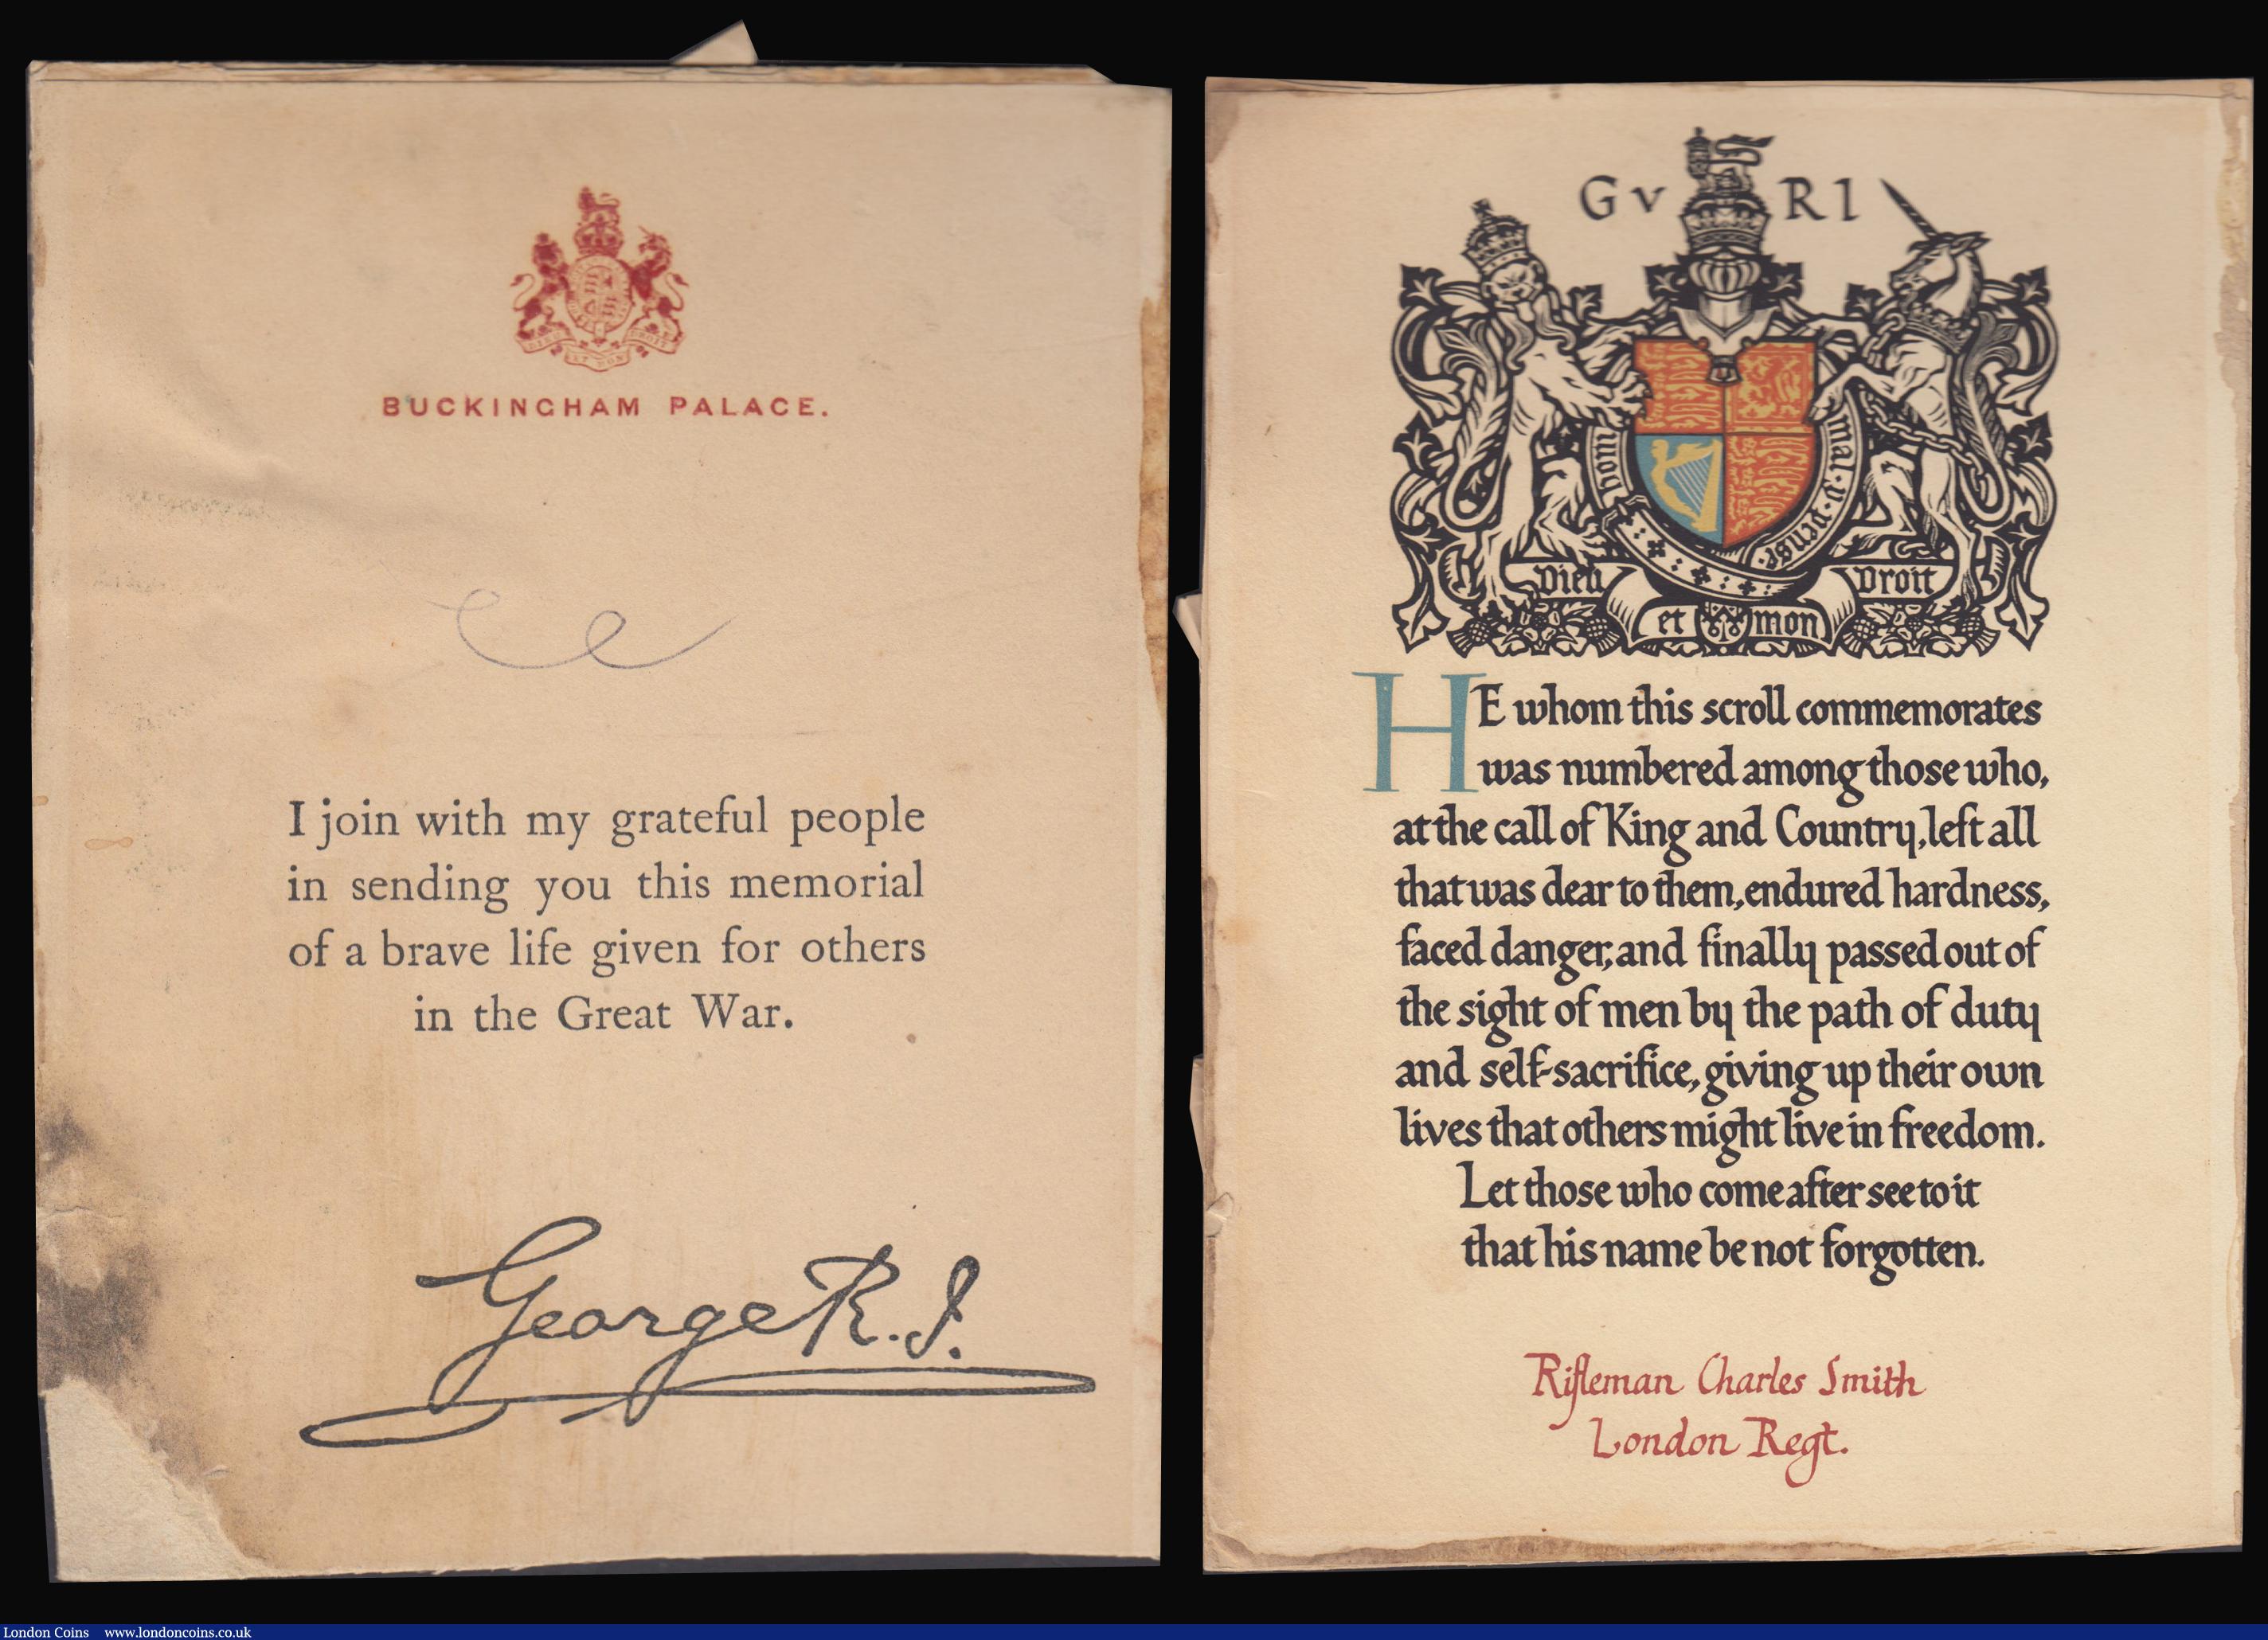 BUCKINGHAM PALACE.
I join with my grateful people
in sending you this memorial
of a brave life given for others
in the Great War.
George R.I.
G V R I
honi mal·y·pense·
Dieu et mon Droit
HE whom this scroll commemorates
was numbered among those who,
at the call of King and Country, left all
that was dear to them, endured hardness,
faced danger, and finally passed out of
the sight of men by the path of duty
and self-sacrifice, giving up their own
lives that others might live in freedom.
Let those who come after see to it
that his name be not forgotten.
Rifleman Charles Smith
London Regt.
London Coins www.londoncoins.co.uk